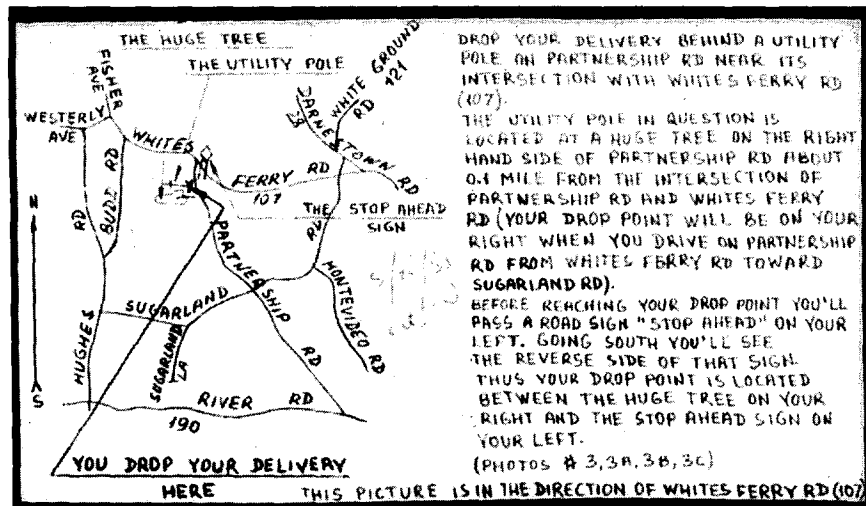 THE HUGE TREE
THE UTILITY POLE
FISHER AVE
WESTERLY AVE
WHITES FERRY RD
107
BUDD RD
HUGHES RD
DARNESTOWN RD
28
WHITE GROUND RD
121
THE STOP AHEAD SIGN
PARTNERSHIP RD
SUGARLAND RD
SUGARLAND LA
MONTEVIDEO RD
RIVER RD
190
N
S
YOU DROP YOUR DELIVERY
HERE
DROP YOUR DELIVERY BEHIND A UTILITY
POLE ON PARTNERSHIP RD NEAR ITS
INTERSECTION WITH WHITES FERRY RD
(107).
THE UTILITY POLE IN QUESTION IS
LOCATED AT A HUGE TREE ON THE RIGHT
HAND SIDE OF PARTNERSHIP RD ABOUT
0.1 MILE FROM THE INTERSECTION OF
PARTNERSHIP RD AND WHITES FERRY
RD (YOUR DROP POINT WILL BE ON YOUR
RIGHT WHEN YOU DRIVE ON PARTNERSHIP
RD FROM WHITES FERRY RD TOWARD
SUGARLAND RD).
BEFORE REACHING YOUR DROP POINT YOU'LL
PASS A ROAD SIGN "STOP AHEAD" ON YOUR
LEFT. GOING SOUTH YOU'LL SEE
THE REVERSE SIDE OF THAT SIGN.
THUS YOUR DROP POINT IS LOCATED
BETWEEN THE HUGE TREE ON YOUR
RIGHT AND THE STOP AHEAD SIGN ON
YOUR LEFT.
(PHOTOS # 3, 3A, 3B, 3C)
THIS PICTURE IS IN THE DIRECTION OF WHITES FERRY RD (107)